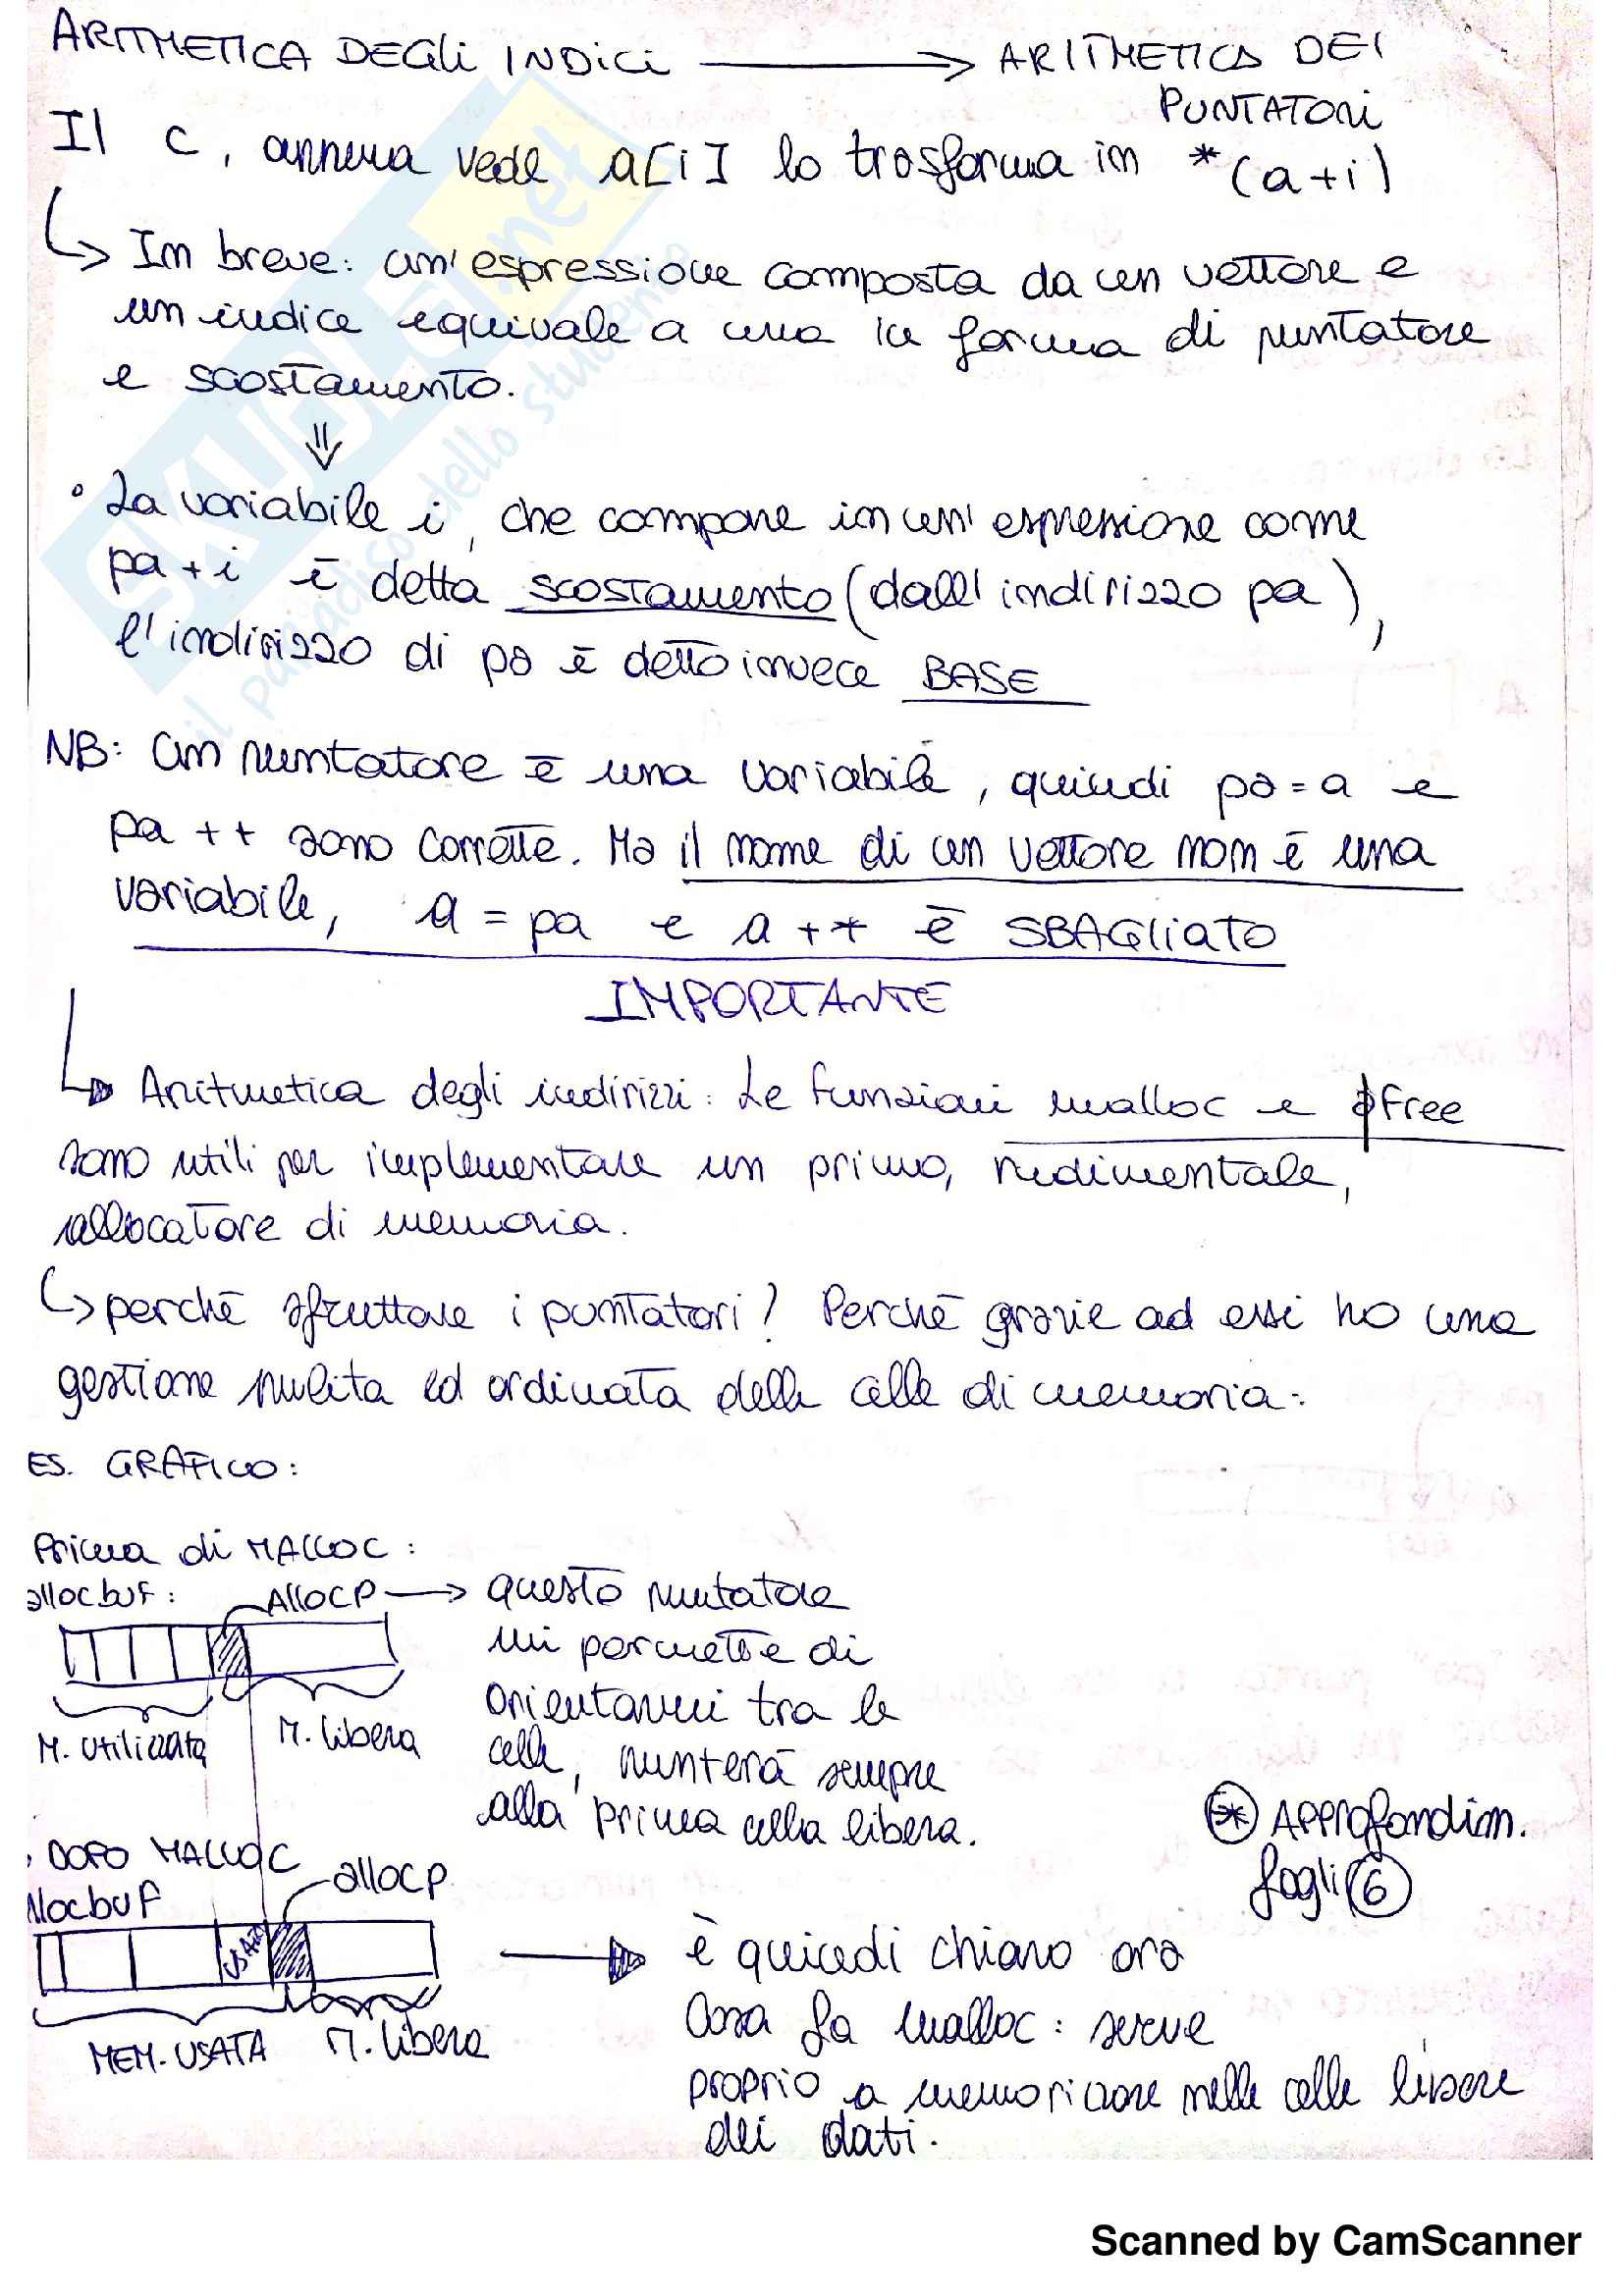 ARITMETICA DEGLI INDICI → ARITMETICA DEI
PUNTATORI
Il C, appena vede a[i] lo trasforma in *(a+i)
↳ In breve: un'espressione composta da un vettore e
un indice equivale a una in forma di puntatore
e scostamento.
⇓
• La variabile i, che compare in un'espressione come
pa+i è detta scostamento (dall'indirizzo pa),
l'indirizzo di pa è detto invece BASE
NB: un puntatore è una variabile, quindi pa=a e
pa++ sono corrette. Ma il nome di un vettore non è una
variabile, a=pa e a++ è SBAGLIATO
IMPORTANTE
↳ Aritmetica degli indirizzi: Le funzioni malloc e free
sono utili per implementare un primo, rudimentale,
allocatore di memoria.
↳ perché sfruttare i puntatori? Perché grazie ad essi ho una
gestione pulita ed ordinata delle celle di memoria:
ES. GRAFICO:
Prima di MALLOC:
allocbuf: ALLOCP → questo puntatore
mi permette di
orientarmi tra le
celle, punterà sempre
alla prima cella libera.
M. Utilizzata M. libera
* Approfondim.
fogli 6
DOPO MALLOC
allocp
llocbuf
USATA
MEM. USATA M. libera
→ è quindi chiaro ora
cosa fa malloc: serve
proprio a memorizzare nelle celle libere
dei dati.
SKUOLA.net
il paradiso dello studente
Scanned by CamScanner